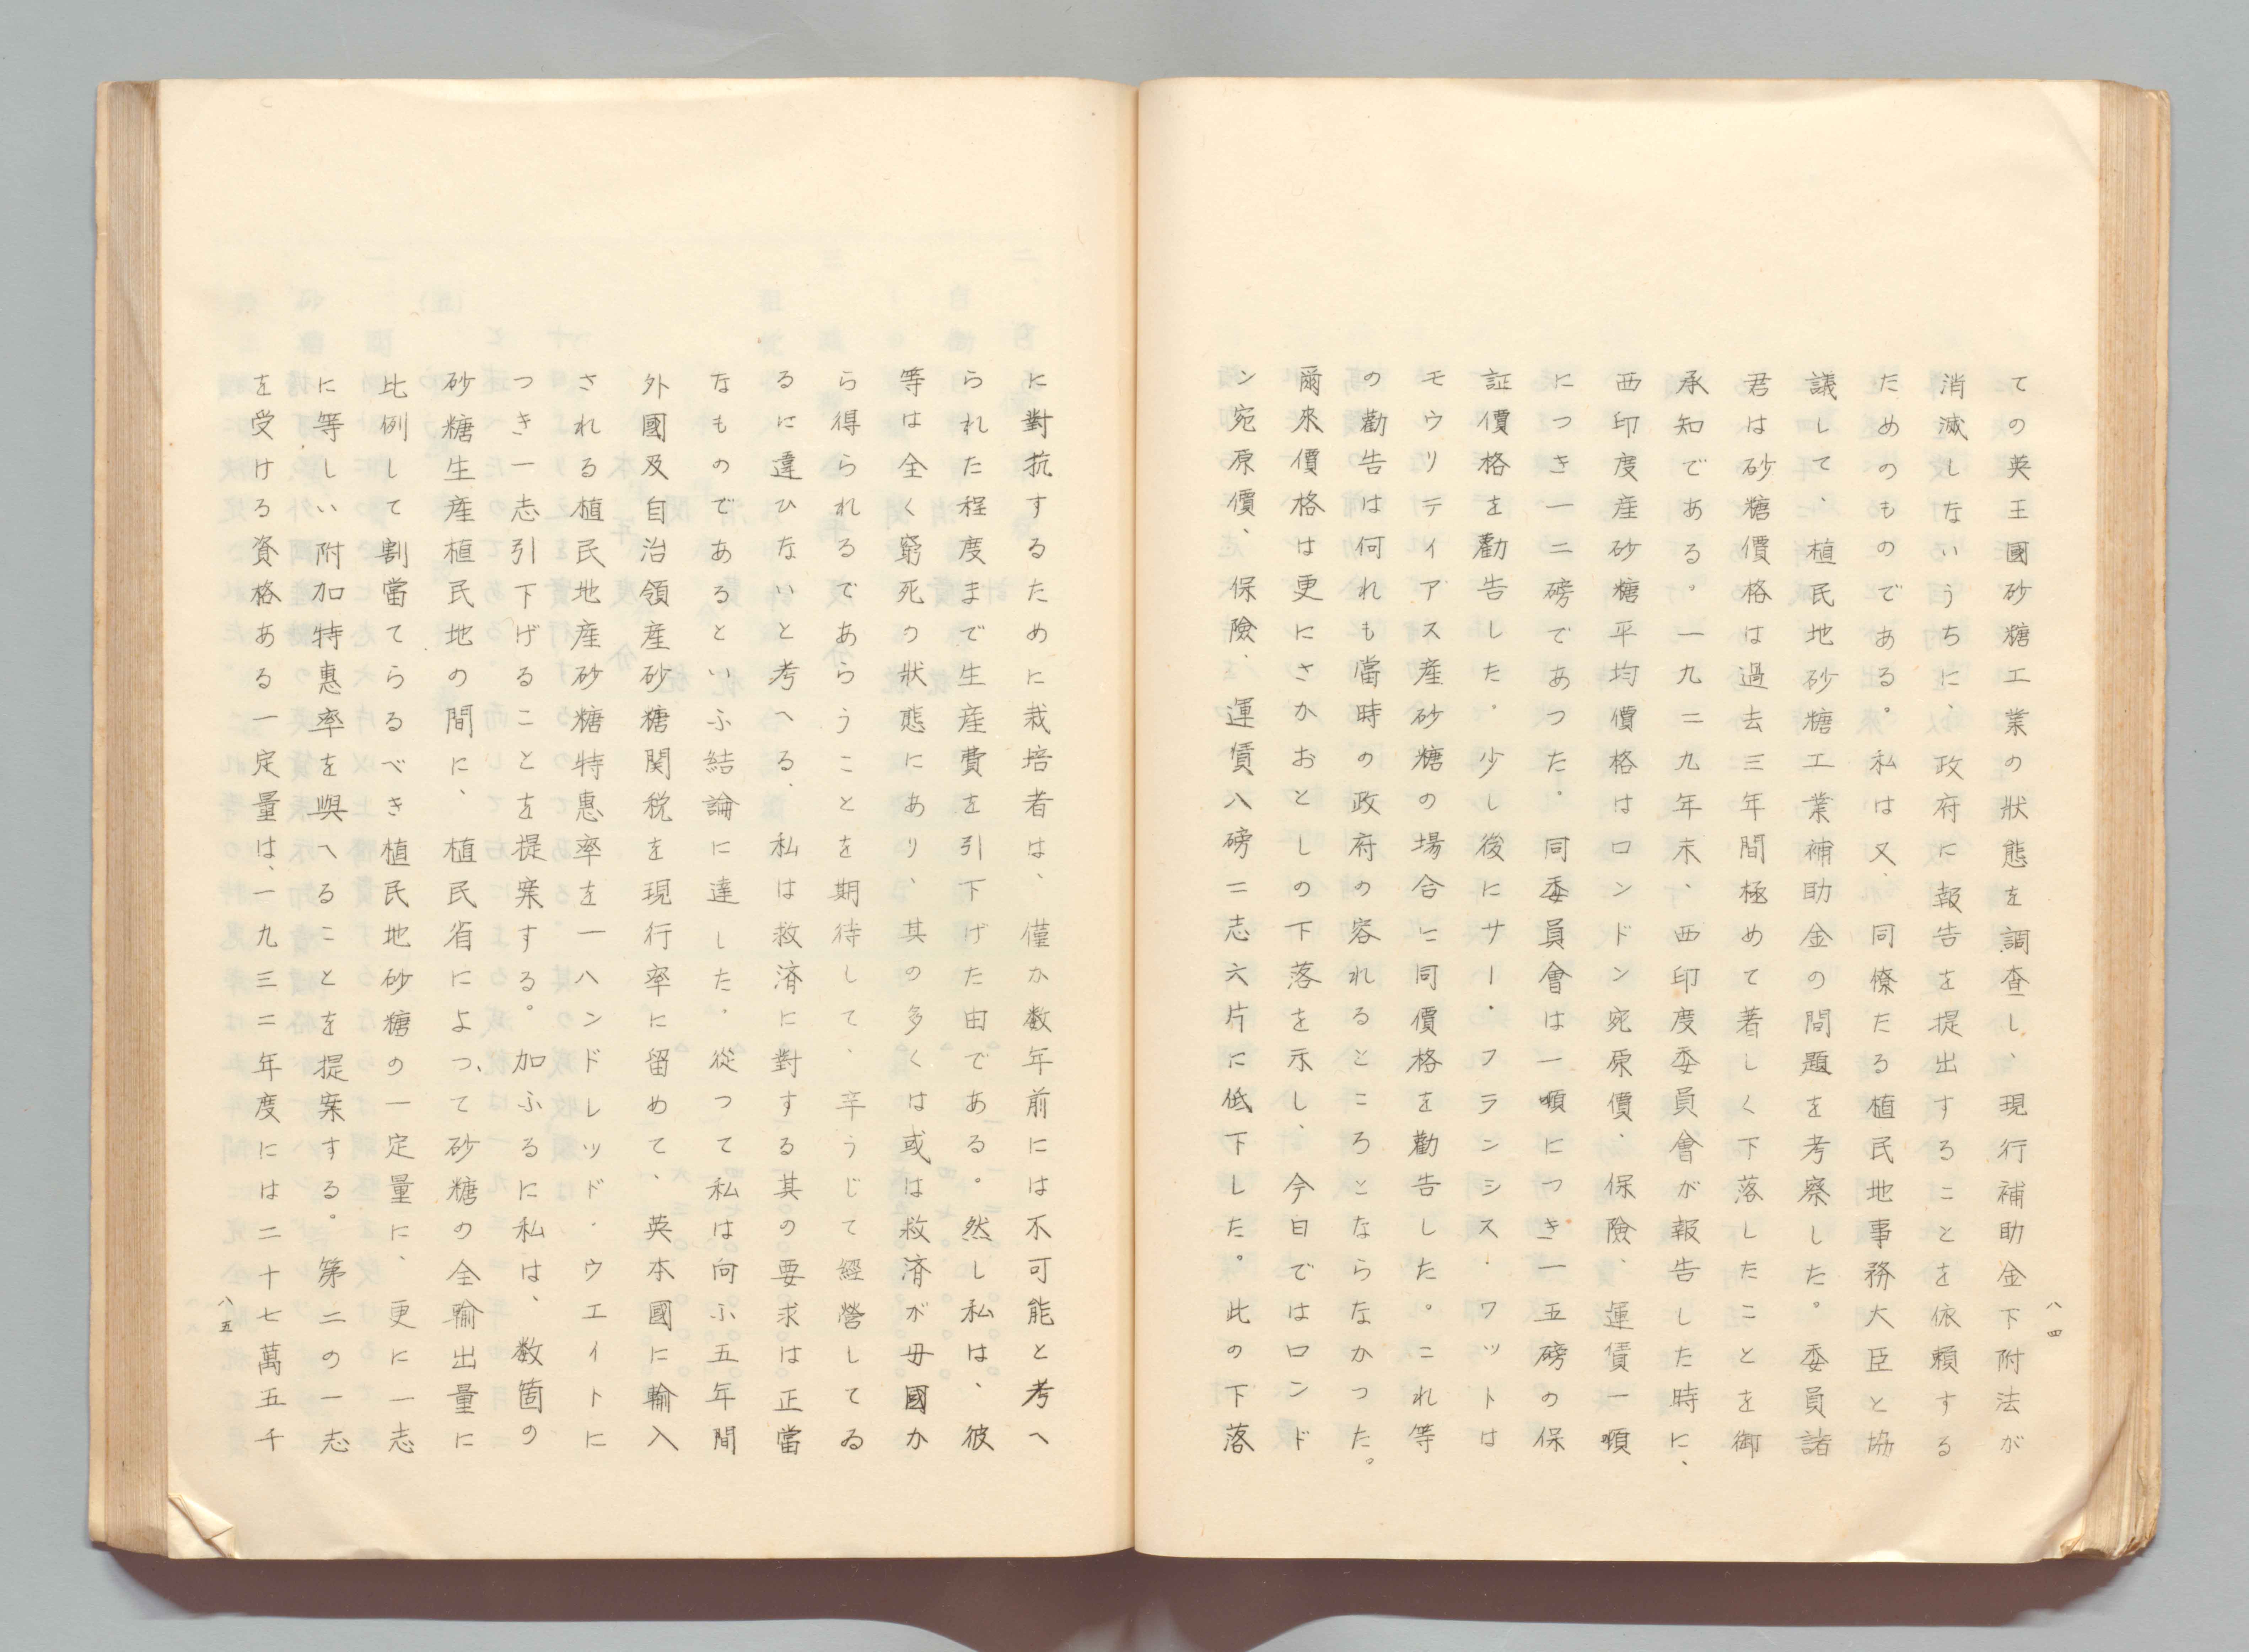 八四
ての英王國砂糖工業の狀態を調査し、現行補助金下附法が
消滅しないうちに、政府に報告を提出することを依頼する
ためのものである。私は又、同僚たる植民地事務大臣と協
議して、植民地砂糖工業補助金の問題を考察した。委員諸
君は砂糖價格は過去三年間極めて著しく下落したことを御
承知である。一九二九年末、西印度委員會が報告した時に、
西印度産砂糖平均價格はロンドン宛原價、保險、運賃一噸
につき一二磅であつた。同委員會は一噸につき一五磅の保
証價格を勸告した。少し後にサー・フランシス・ワットは
モウリテイアス産砂糖の場合に同價格を勸告した。これ等
の勸告は何れも當時の政府の容れるところとならなかつた。
爾來價格は更にさかおとしの下落を示し、今日ではロンド
ン宛原價、保險、運賃八磅二志六片に低下した。此の下落
に對抗するために栽培者は、僅か数年前には不可能と考へ
られた程度まで生産費を引下げた由である。然し私は、彼
等は全く窮死の狀態にあり、其の多くは或は救済が母國か
ら得られるであらうことを期待して、辛うじて經營してゐ
るに違ひないと考へる。私は救済に對する其の要求は正當
なものであるといふ結論に達した。從つて私は向ふ五年間
外國及自治領産砂糖関税を現行率に留めて、英本國に輸入
される植民地産砂糖特惠率を一ハンドレッド・ウエイトに
つき一志引下げることを提案する。加ふるに私は、数箇の
砂糖生産植民地の間に、植民省によつて砂糖の全輸出量に
比例して割當てらるべき植民地砂糖の一定量に、更に一志
に等しい附加特惠率を與へることを提案する。第二の一志
を受ける資格ある一定量は、一九三二年度には二十七萬五千
八五